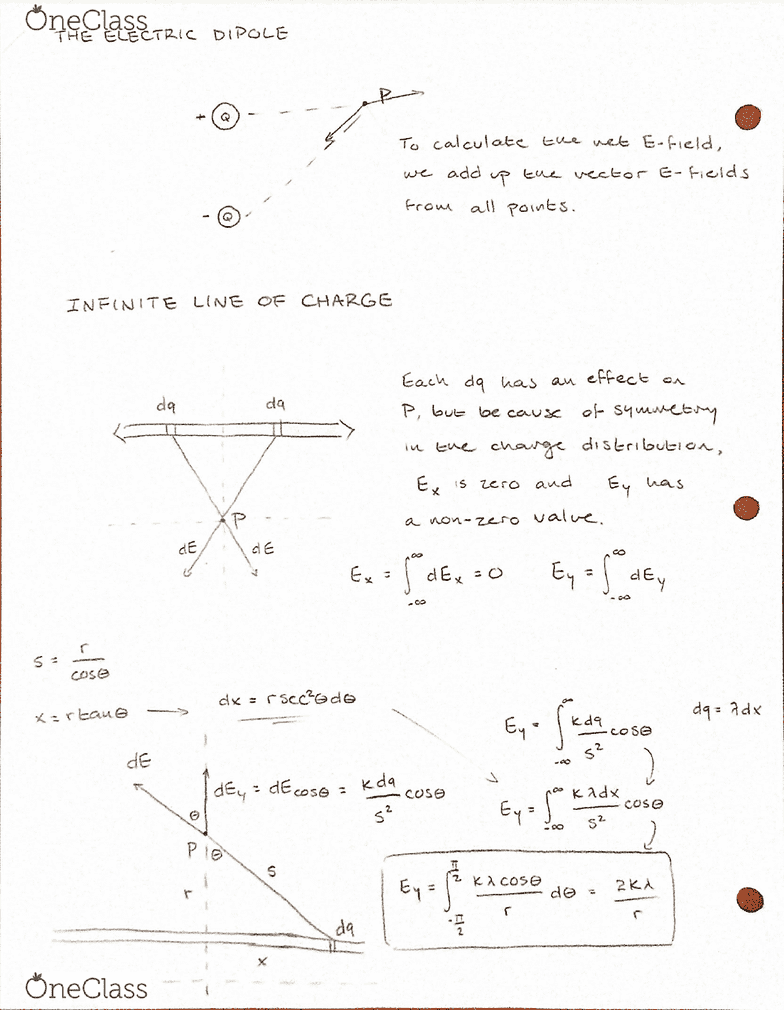 OneClass
THE ELECTRIC DIPOLE
+ Q
P
- Q
To calculate the net E-field,
we add up the vector E-fields
from all points.
INFINITE LINE OF CHARGE
dq dq
P
dE dE
Each dq has an effect on
P, but because of symmetry
in the charge distribution,
Ex is zero and Ey has
a non-zero value.
Ex = ∫_{-∞}^{∞} dEx = 0 Ey = ∫_{-∞}^{∞} dEy
s = r/cosθ
x = r tanθ → dx = r sec²θdθ
dE
dEy = dE cosθ = kdq/s² cosθ
θ
P θ
s
r
dq
x
Ey = ∫_{-∞}^{∞} kdq/s² cosθ dq = λdx
Ey = ∫_{-∞}^{∞} kλdx/s² cosθ
Ey = ∫_{-π/2}^{π/2} kλcosθ/r dθ = 2kλ/r
OneClass